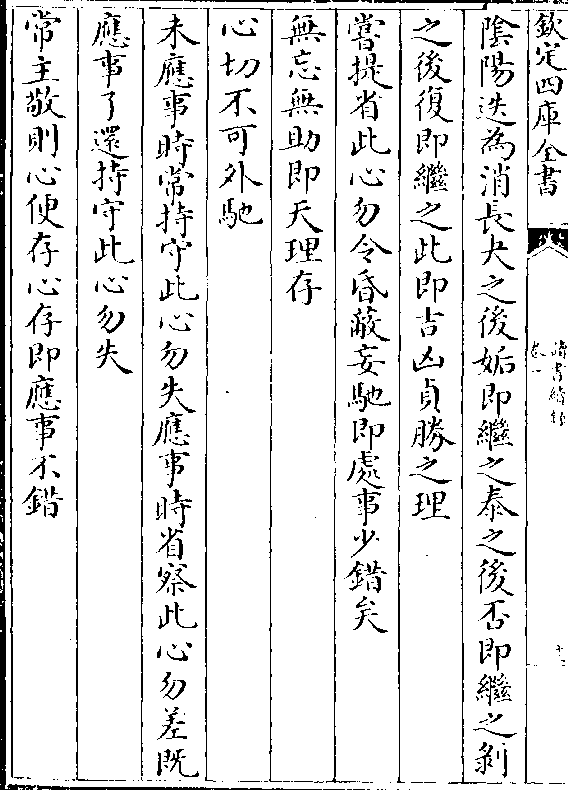 欽定四庫全書
讀書續錄
卷一
陰陽迭為消長夬之後姤即繼之泰之後否即繼之剝
之後復即繼之此即吉凶貞勝之理
嘗提省此心勿令昏蔽妄馳即處事少錯矣
無忘無助即天理存
心切不可外馳
未應事時常持守此心勿失應事時省察此心勿差既
應事了還持守此心勿失
常主敬則心便存心存即應事不錯